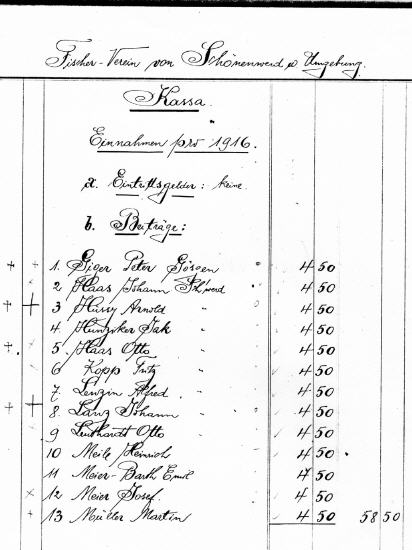 Fischer-Verein von Schönenwerd & Umgebung.
Kassa.
Einnahmen pro 1916.
a. Eintrittsgelder: keine
b. Beiträge:
1. Giger Peter Gösgen " 4 50
2 Haas Johann Sch'werd " 4 50
3 Hürzy Arnold " 4 50
4 Hunziker Jak " 4 50
5 Haas Otto " 4 50
6 Kopp Fritz " 4 50
7 Lenzin Alfred " 4 50
8 Lanz Johann " 4 50
9 Leuthardt Otto " 4 50
10 Meile Heinrich 4 50
11 Meier-Barth Emil 4 50
12 Meier Josef 4 50
13 Müller Martin 4 50 58 50